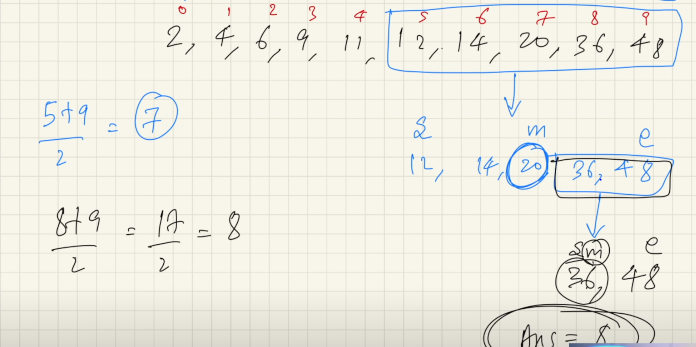 0 1 2 3 4 5 6 7 8 9
2, 4, 6, 9, 11, 12, 14, 20, 36, 48
5+9/2 = 7
S m e
12, 14, 20 36, 48
8+9/2 = 17/2 = 8
s m e
36, 48
Ans = 8